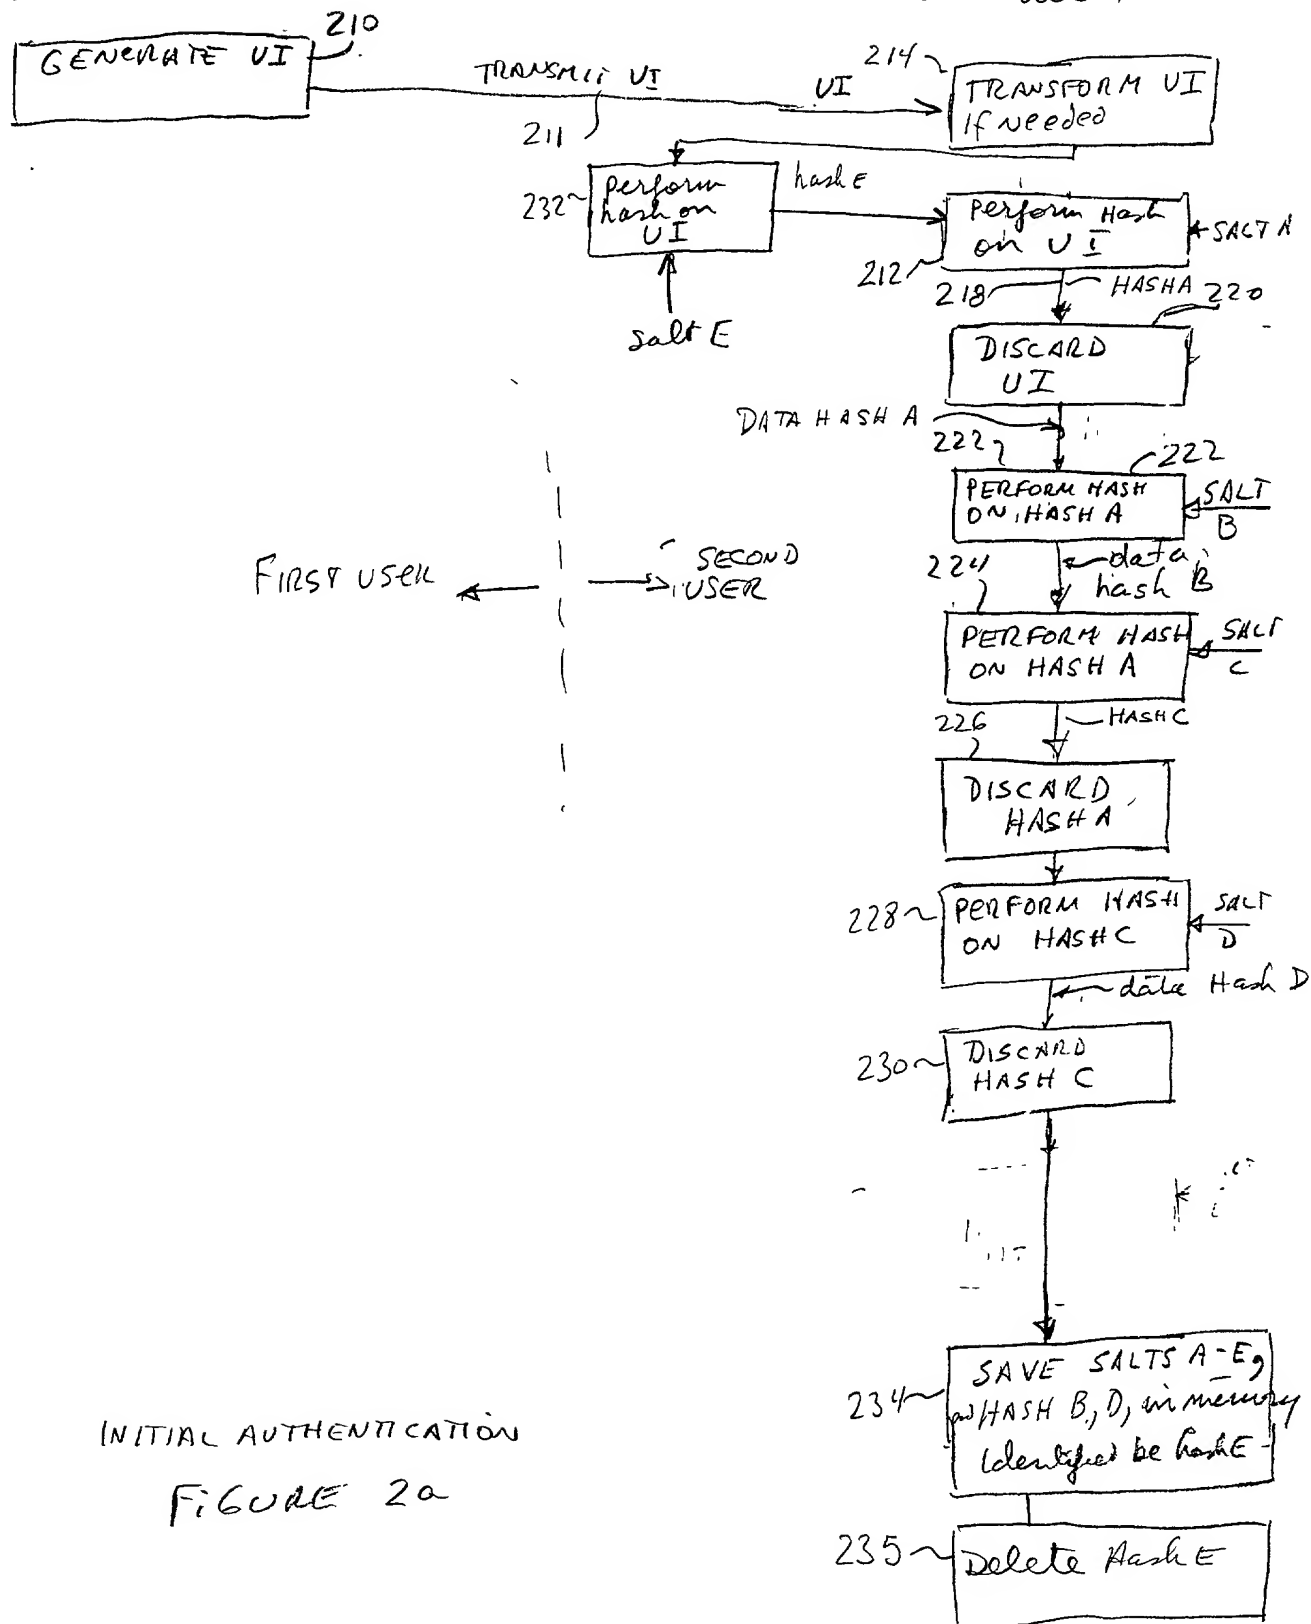 210
GENERATE UI
TRANSMIT UI
UI
211
214
TRANSFORM UI
If Needed
232
perform
hash on
UI
hash E
salt E
Perform Hash
on UI
SALT A
212
218
HASHA
220
DISCARD
UI
DATA HASH A
222
222
PERFORM HASH
ON HASH A
SALT
B
data
hash B
FIRST USER
SECOND
USER
224
PERFORM HASH
ON HASH A
SALT
C
HASHC
226
DISCARD
HASH A
228
PERFORM HASH
ON HASHC
SALT
D
data Hash D
230
DISCARD
HASH C
234
SAVE SALTS A-E,
HASH B, D, in memory
identified be hashE
235
Delete Hash E
INITIAL AUTHENTICATION
FIGURE 2a